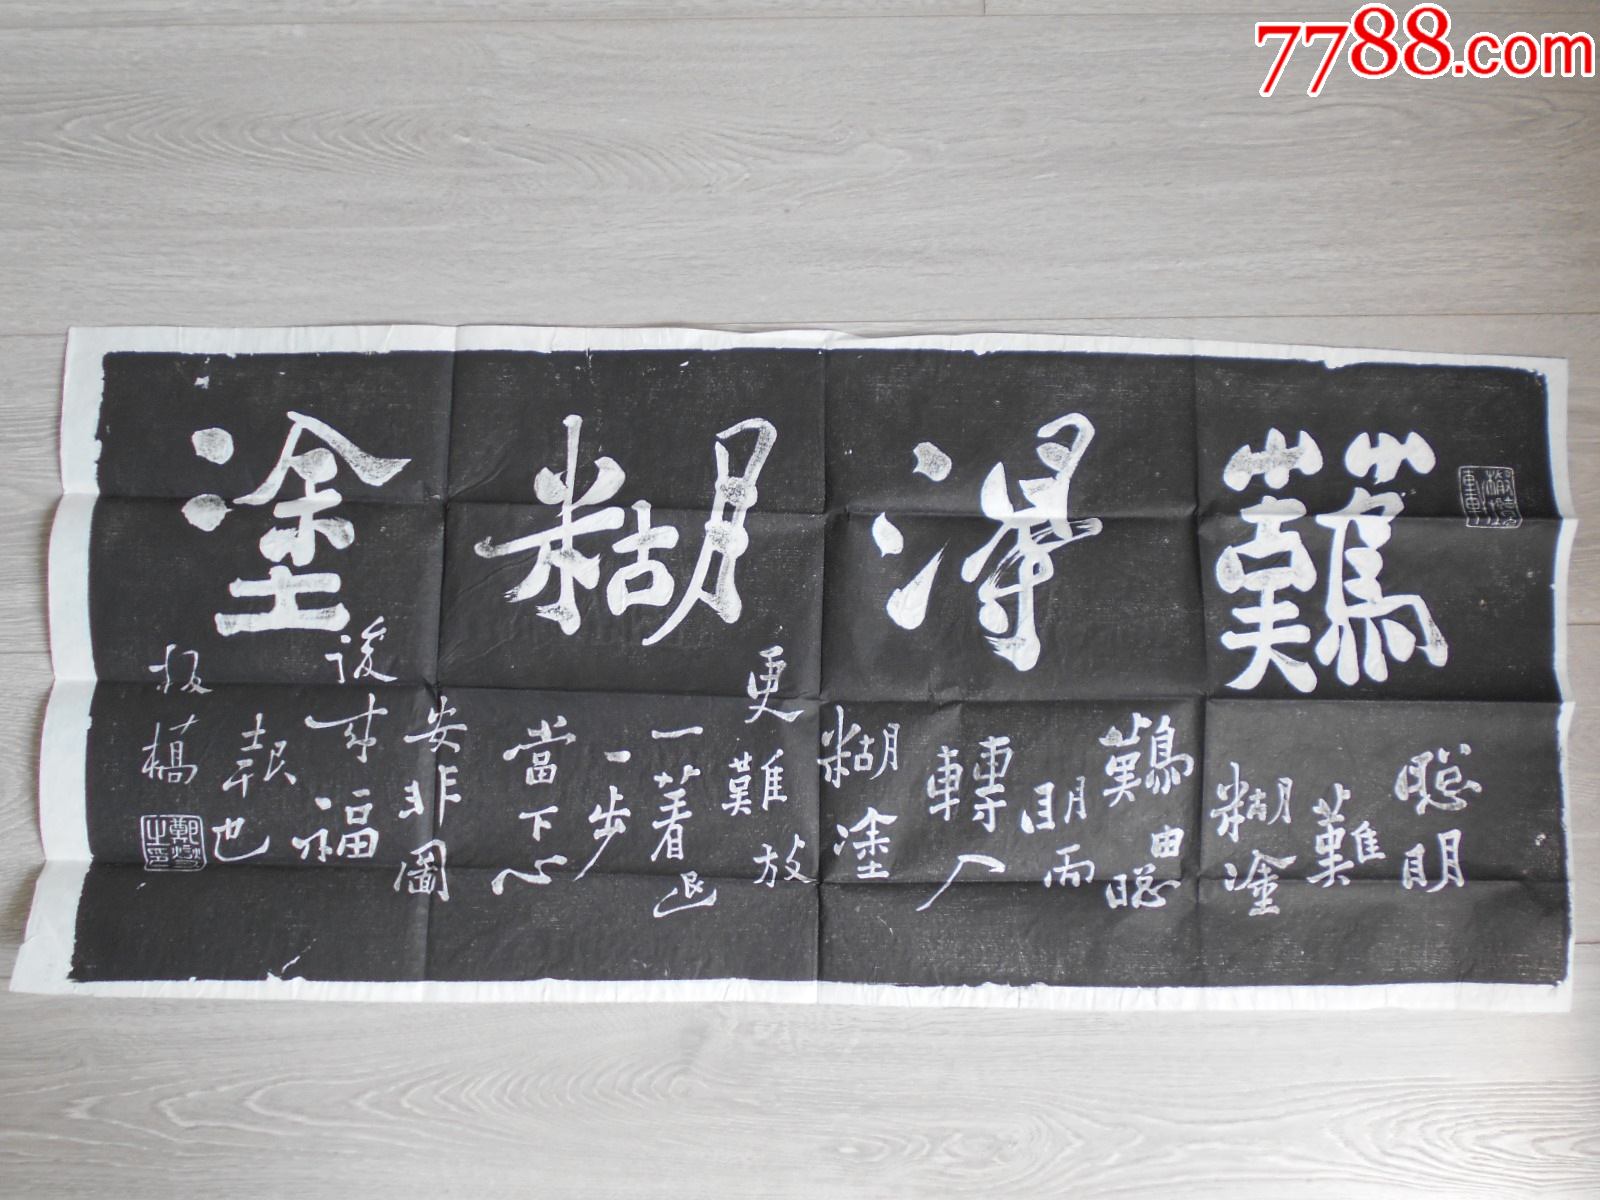 7788.com
難得糊塗
聰明
難
糊塗
難由聰
明而
轉入
糊塗
更難放
一著退
一步
當下心
安非圖
後來福
報也
板橋
鄭燮之印